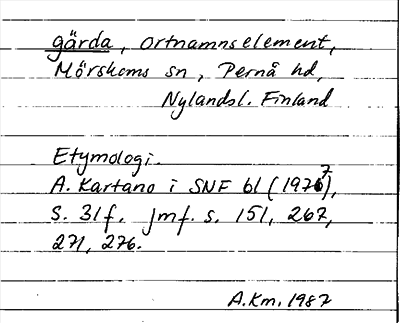 gärda, ortnamnselement,
Mörskoms sn, Pernå hd,
Nylandsl. Finland
Etymologi.
A. Kartano i SNF 61 (1977),
S. 31 f. Jmf. s. 151, 267,
271, 276.
A.Km. 1987